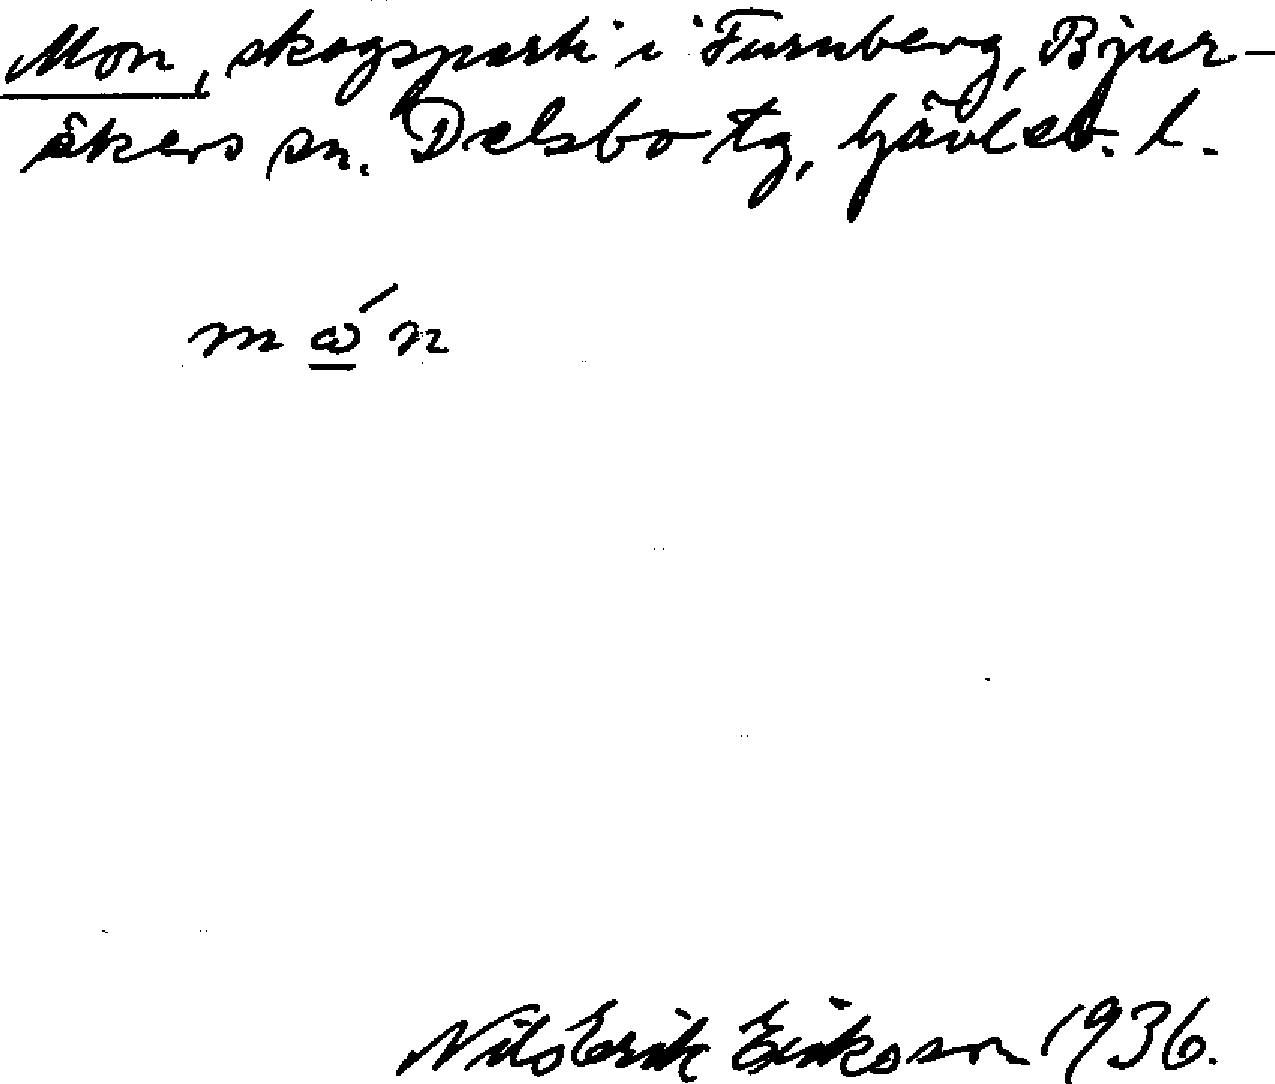 Mon, skogsparti i Furuberg, Bjur-
åkers sn. Delsbo tg, Gävleb. l.
mώn
Nils Erik Eriksson 1936.